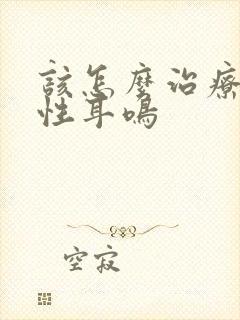 该怎麽治療
性耳鳴
空寂